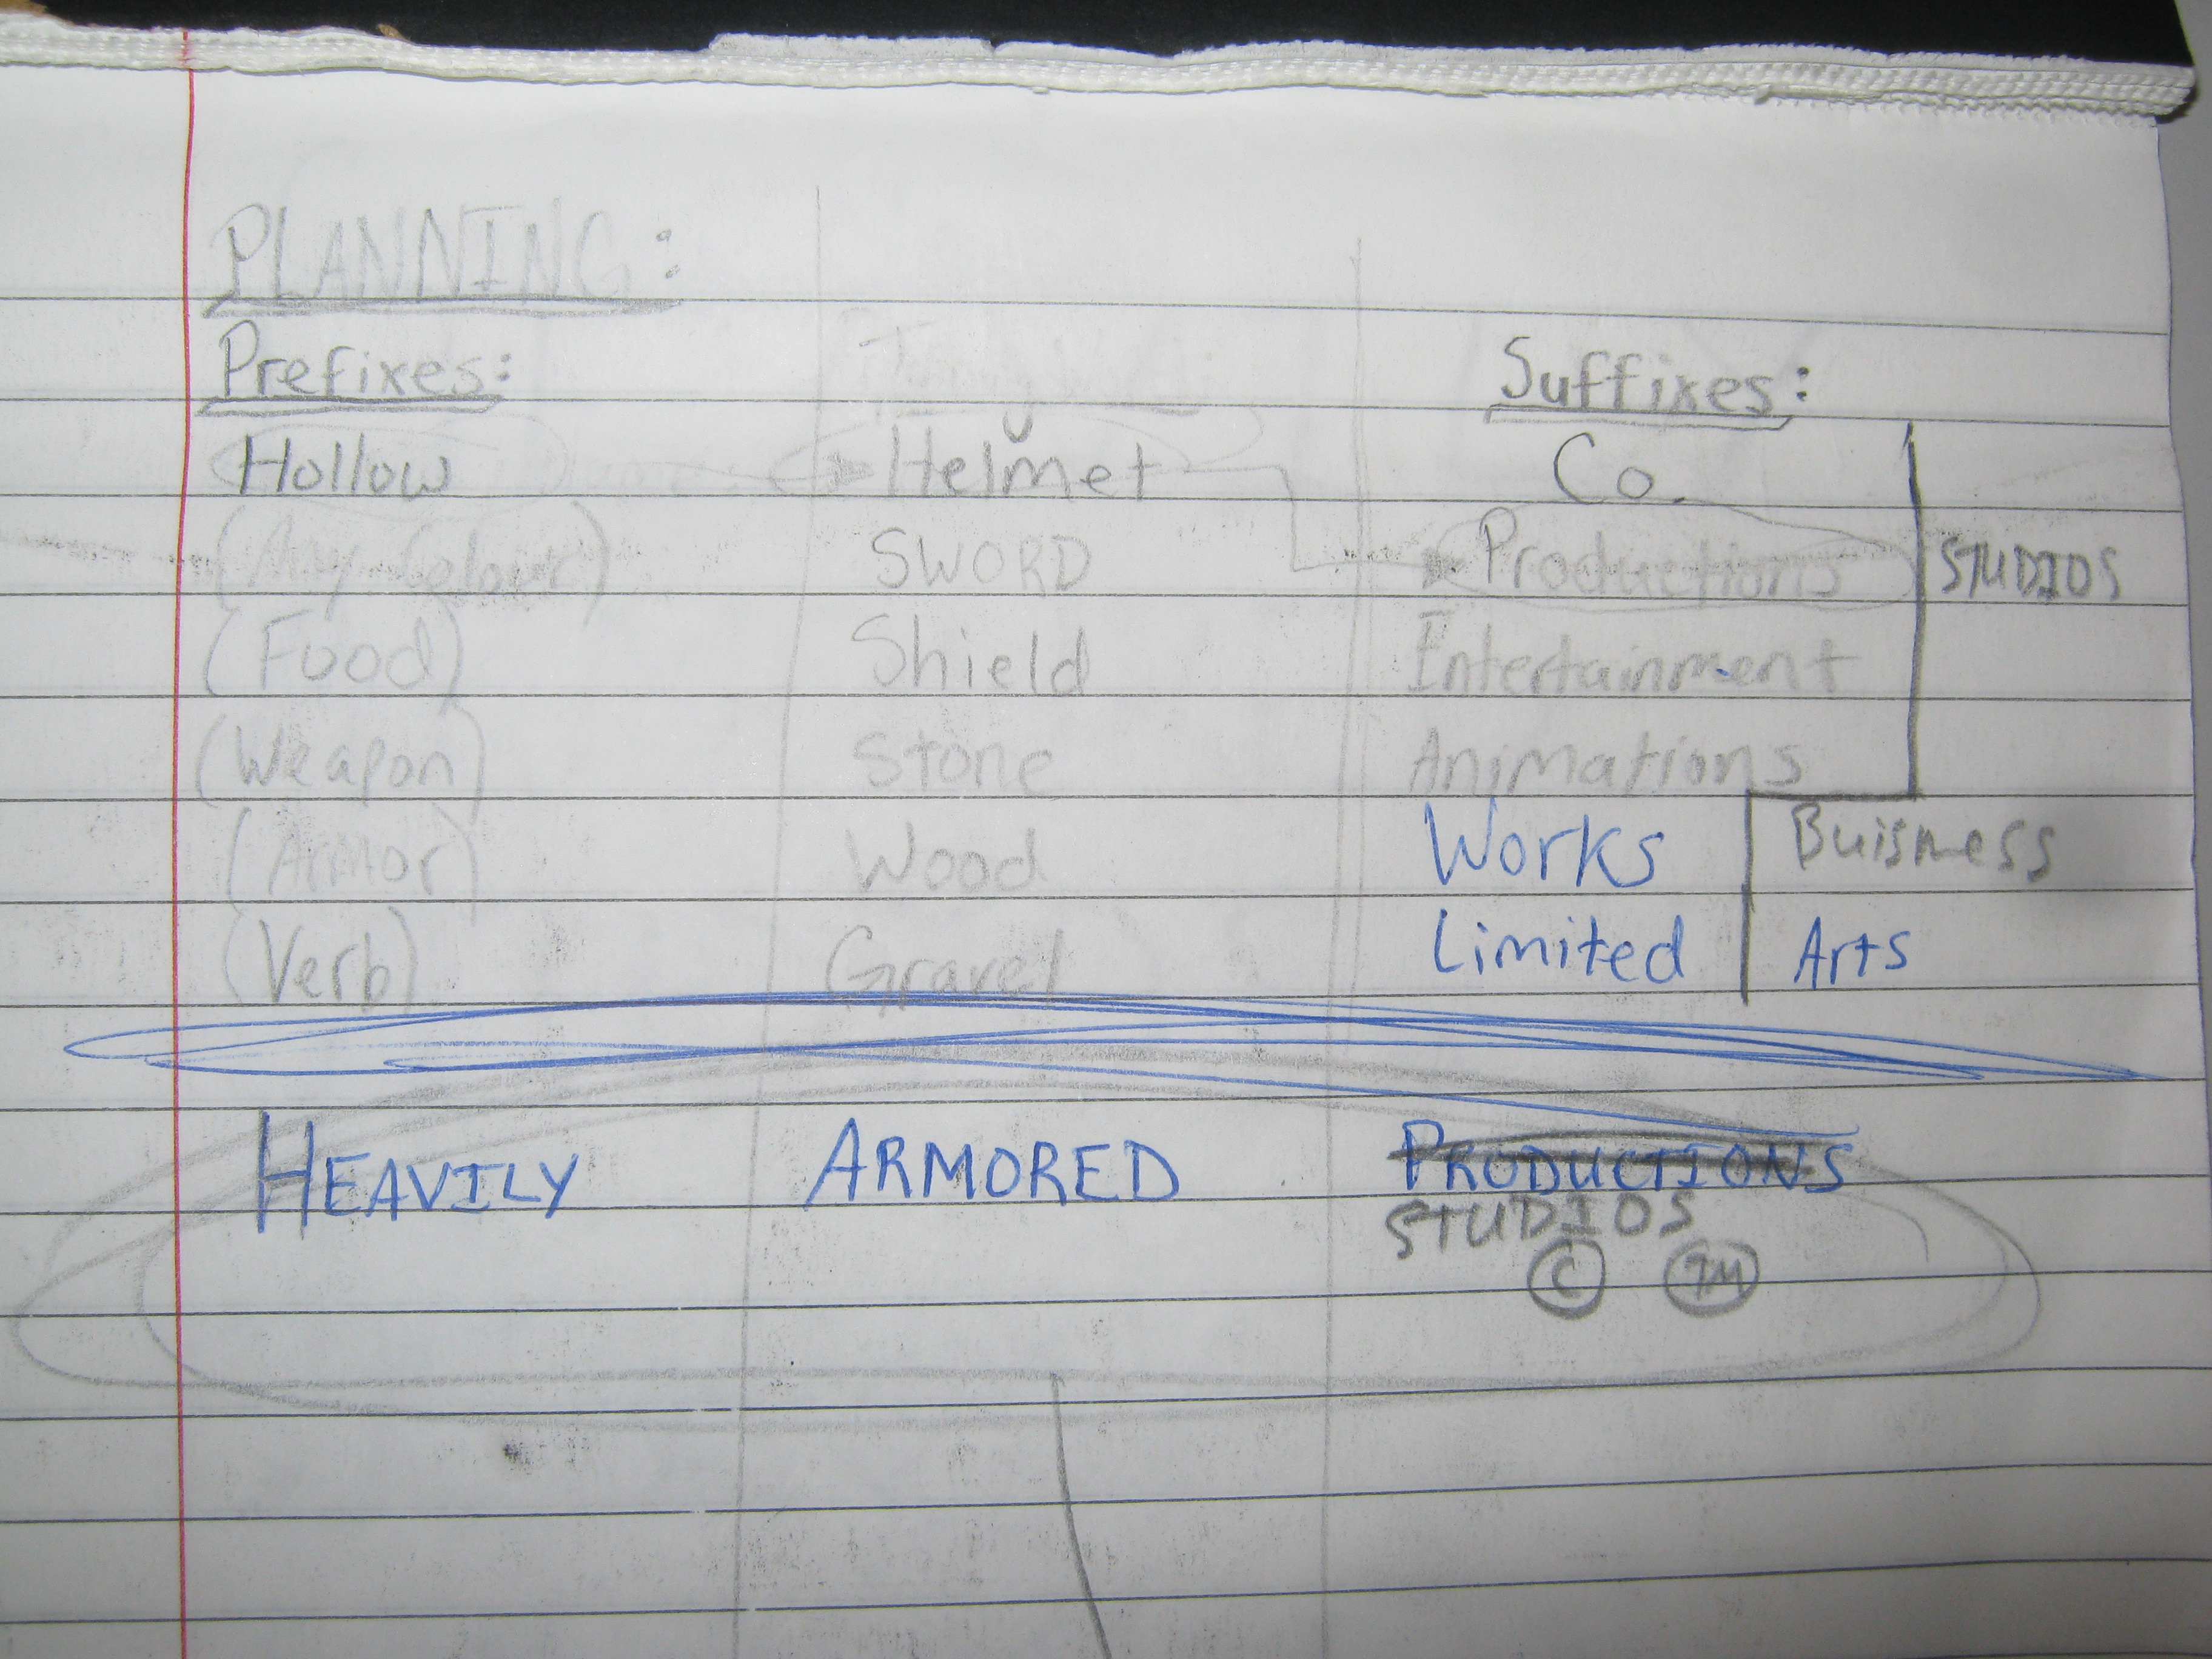 PLANNING:
Prefixes: Suffixes:
Hollow Helmet Co.
(Any Colour) SWORD Productions STUDIOS
(Food) Shield Entertainment
(Weapon) Stone Animations
(Armor) Wood Works Buisness
(Verb) Gravel Limited Arts
HEAVILY ARMORED PRODUCTIONS
STUDIOS
© TM